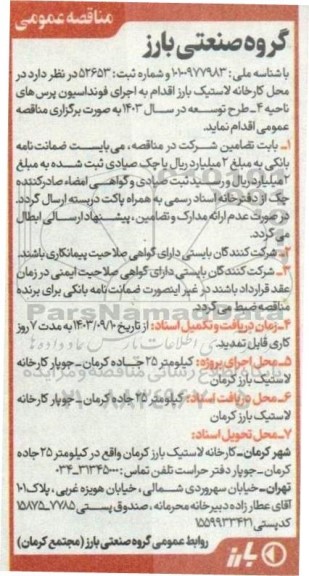 مناقصه عمومی
گروه صنعتی بارز
با شناسه ملی: ۱۰۱۰۰۹۷۷۹۸۳ و شماره ثبت: ۵۲۶۵۳ در نظر دارد در
محل کارخانه لاستیک بارز اقدام به اجرای فونداسیون پرس های
ناحیه ۴_ طرح توسعه در سال ۱۴۰۳ به صورت برگزاری مناقصه
عمومی اقدام نماید.
۱_ بابت تضامین شرکت در مناقصه، می بایست ضمانت نامه
بانکی به مبلغ ۲ میلیارد ریال یا چک صیادی ثبت شده به مبلغ
۲ میلیارد ریال و رسید ثبت صیادی و گواهی امضاء صادر کننده
چک از دفترخانه اسناد رسمی به همراه پاکت دربسته ارسال گردد.
در صورت عدم ارائه مدارک و تضامین، پیشنهاد ارسالی ابطال
می گردد.
۲_ شرکت کنندگان بایستی دارای گواهی صلاحیت پیمانکاری باشند.
۳_ شرکت کنندگان بایستی دارای گواهی صلاحیت ایمنی در زمان
عقد قرارداد باشند در غیر اینصورت ضمانت نامه بانکی برای برنده
مناقصه ضبط می گردد.
۴_زمان دریافت و تکمیل اسناد: از تاریخ ۱۴۰۳/۰۹/۱۰ به مدت ۷ روز
کاری قابل تمدید.
۵_محل اجرای پروژه: کیلومتر ۲۵ جاده کرمان _ جوپار کارخانه
لاستیک بارز کرمان
۶_ محل دریافت اسناد: کیلومتر ۲۵ جاده کرمان _ جوپار کارخانه
لاستیک بارز کرمان
۷_محل تحویل اسناد:
شهر کرمان_کارخانه لاستیک بارز کرمان واقع در کیلومتر ۲۵ جاده
کرمان_ جوپار دفتر حراست تلفن تماس: ۳۱۳۴۵۰۰۰_۰۳۴
تهران_خیابان سهروردی شمالی، خیابان هویزه غربی، پلاک ۱۰۱
آقای عطار زاده دبیرخانه محرمانه، صندوق پستی ۷۷۸۵_۱۵۸۷۵
کدپستی ۱۵۵۹۹۳۳۴۲۱
روابط عمومی گروه صنعتی بارز (مجتمع کرمان)
بارز
ParsNamadData